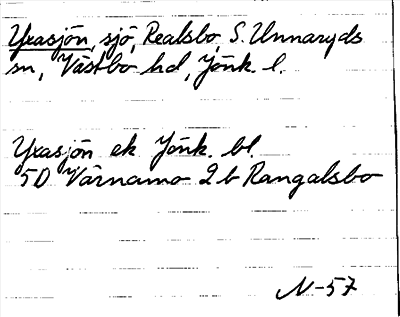 Yxasjön, sjö, Realsbo, S. Unnaryds
sn, Västbo hd, Jönk. l.
Yxasjön ek Jönk. bl.
5D Värnamo 2b Rangalsbo
N-57